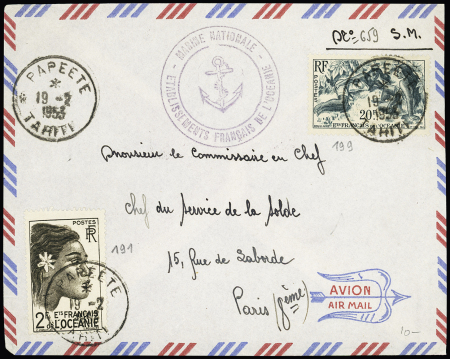 N° 659 S.M.
PAPEETE
19 - 2
1953
TAHITI
- MARINE NATIONALE -
ETABLISSEMENTS FRANÇAIS DE L'OCEANIE
RF
20F
Ets FRANÇAIS DE L'OCÉANIE
PAPEETE
19
1953
TAHITI
199
Monsieur le Commissaire en Chef
Chef du Service de la Solde
15, Rue de Laborde
Paris (8ème)
191
POSTES
RF
2F
Ets FRANÇAIS
DE
L'OCÉANIE
PAPEETE
19 - 2
TAHITI
AVION
AIR MAIL
10-